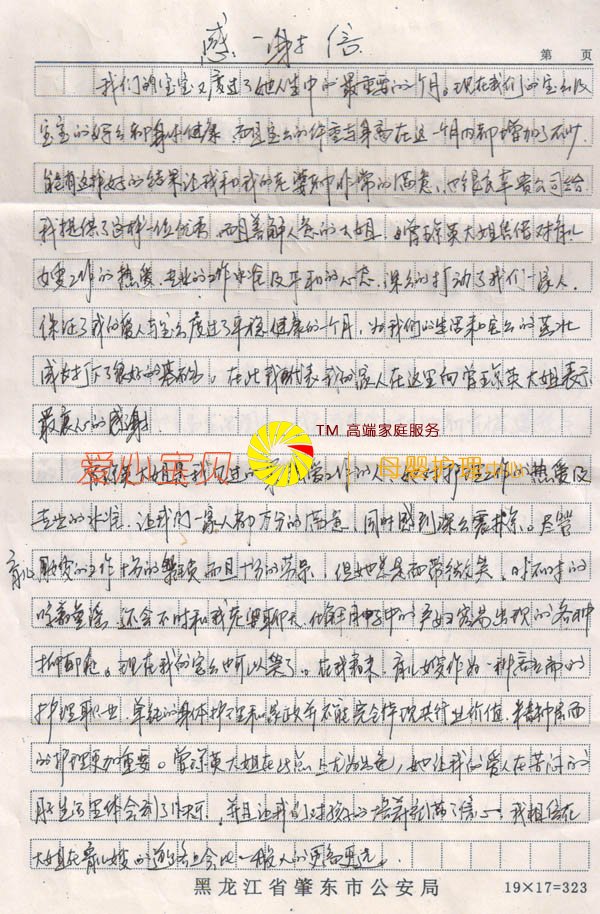 感谢信
第 页
我们的宝宝又度过了她人生中的最重要的个月。现在我们的宝宝及
宝宝的妈妈都身体健康，而且宝宝的体重与身高在这一个月内都增加了不少
能有这样好的结果让我和我的爱妻都非常的满意，也很感幸贵公司给
我提供了这样一位优秀，而且善解人意的大姐。曾琼英大姐凭借对育儿
嫂工作的热爱，专业的工作水准及平和的心态，深深的打动了我们一家人。
保证了我的爱人与宝宝度过了平稳健康的一个月，为我们的生活和宝宝的茁壮
成长打下了很好的基础。在此我代表我的家人在这里向曾琼英大姐表示
最衷心的感谢
TM 高端家庭服务
爱心宝贝 母婴护理中心
大姐是我见过的工作的人，她对护理工作的热爱及
专业的水准，让我们一家人都万分的满意，同时感到深深震撼。尽管
育儿嫂的工作十分的繁琐而且十分的劳累，但她总是面带微笑，时不时的
哼着童谣，还会不时和我爱妻聊天，化解月子中的产妇容易出现的各种
抑郁症。现在我的宝宝也可以笑了。在我看来，育儿嫂作为一种
护理职业，单纯的身体护理和家政并不能完全体现其行业价值，精神层面
的护理更加重要。曾琼英大姐在此点上尤为出色，她让我的爱人在苦闷的
月子生活里体会到了快乐，并且让我们对孩子的培养充满了信心，我相信在
大姐在育儿嫂的道路上会比一般人的更多更远。
黑龙江省肇东市公安局
19×17=323